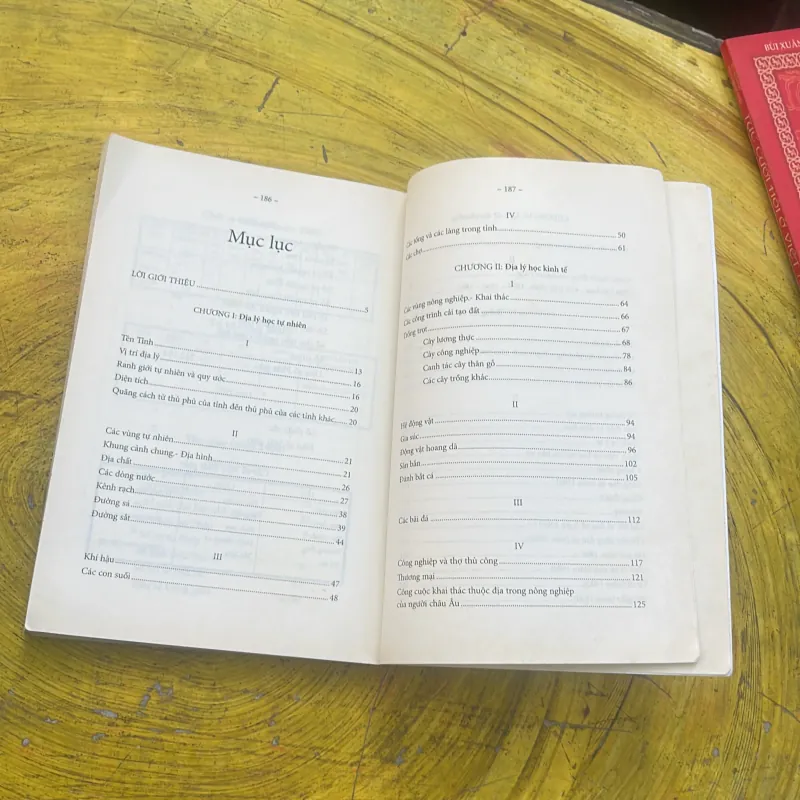 – 186 –
Mục lục
LỜI GIỚI THIỆU 5
CHƯƠNG I: Địa lý học tự nhiên
I
Tên Tỉnh 13
Vị trí địa lý 16
Ranh giới tự nhiên và quy ước 16
Diện tích 20
Quãng cách từ thủ phủ của tỉnh đến thủ phủ của các tỉnh khác 20
II
Các vùng tự nhiên 21
Khung cảnh chung.- Địa hình 21
Địa chất 26
Các dòng nước 27
Kênh rạch 38
Đường sá 39
Đường sắt 44
III
Khí hậu 47
Các con suối 48
– 187 –
IV
Các tổng và các làng trong tỉnh 50
Các chợ 61
CHƯƠNG II: Địa lý học kinh tế
I
Các vùng nông nghiệp.- Khai thác 64
Các công trình cải tạo đất 66
Trồng trọt 67
Cây lương thực 68
Cây công nghiệp 78
Canh tác cây thân gỗ 84
Các cây trồng khác 86
II
Hệ động vật 94
Gia súc 94
Động vật hoang dã 96
Săn bắn 102
Đánh bắt cá 105
III
Các bãi đá 112
IV
Công nghiệp và thợ thủ công 117
Thương mại 121
Công cuộc khai thác thuộc địa trong nông nghiệp
của người châu Âu 125
BÙI XUÂN